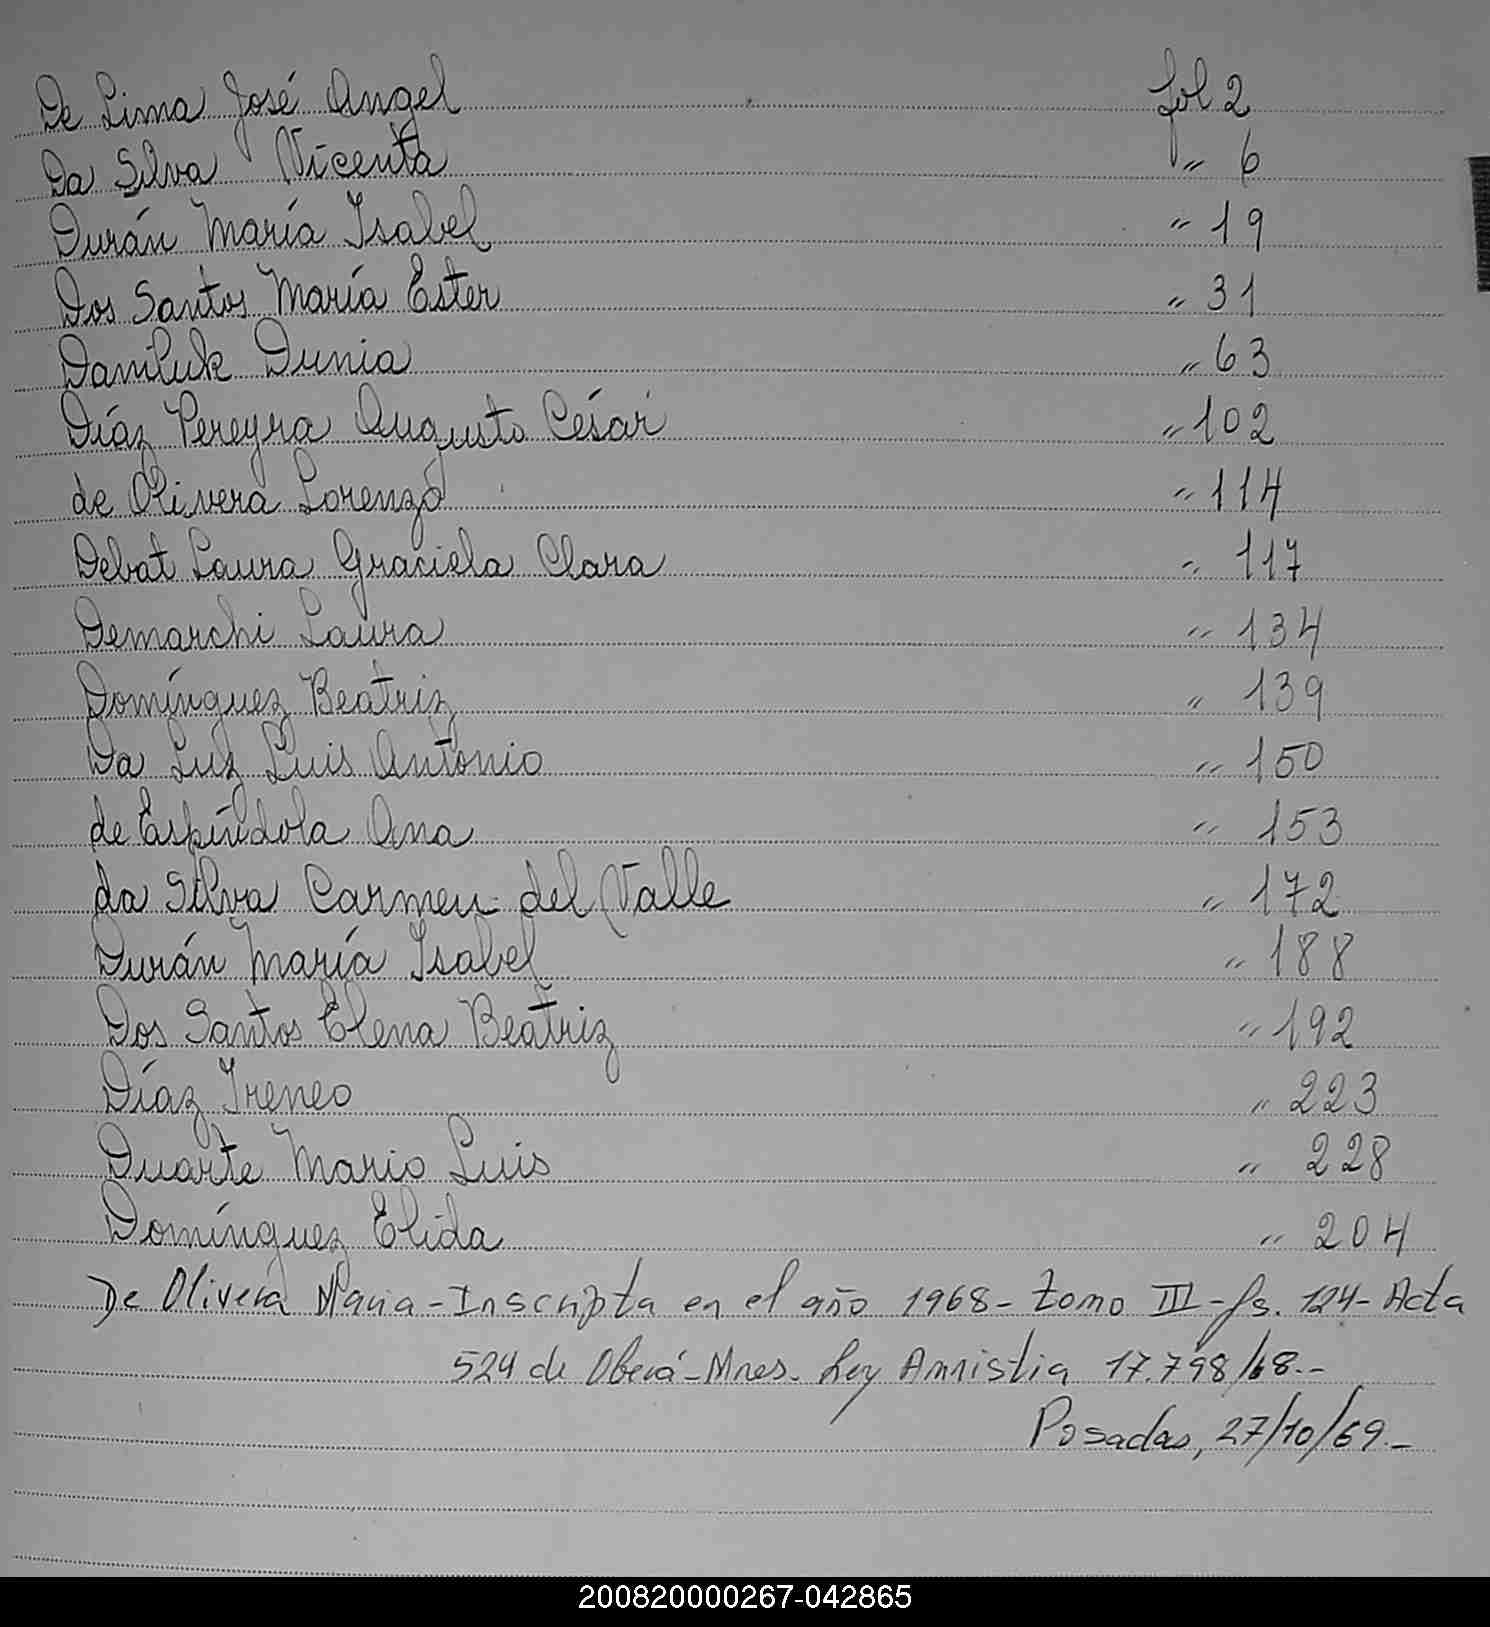 De Lima José Angel fol 2
Da Silva Vicenta " 6
Durán María Isabel " 19
Dos Santos María Ester " 31
Daniluk Dunia " 63
Díaz Pereyra Augusto César " 102
de Olivera Lorenzo " 114
Debat Laura Graciela Clara " 117
Demarchi Laura " 134
Domínguez Beatriz " 139
Da Luz Luis Antonio " 150
de Espíndola Ana " 153
da Silva Carmen del Valle " 172
Durán María Isabel " 188
Dos Santos Elena Beatriz " 192
Díaz Ireneo " 223
Duarte Mario Luis " 228
Domínguez Elida " 204
De Olivera Maria - Inscripta en el año 1968 - tomo III - fs. 124 - Acta
524 de Oberá - Mnes. Ley Amnistia 17.798/68.-
Posadas, 27/10/69.-
200820000267-042865